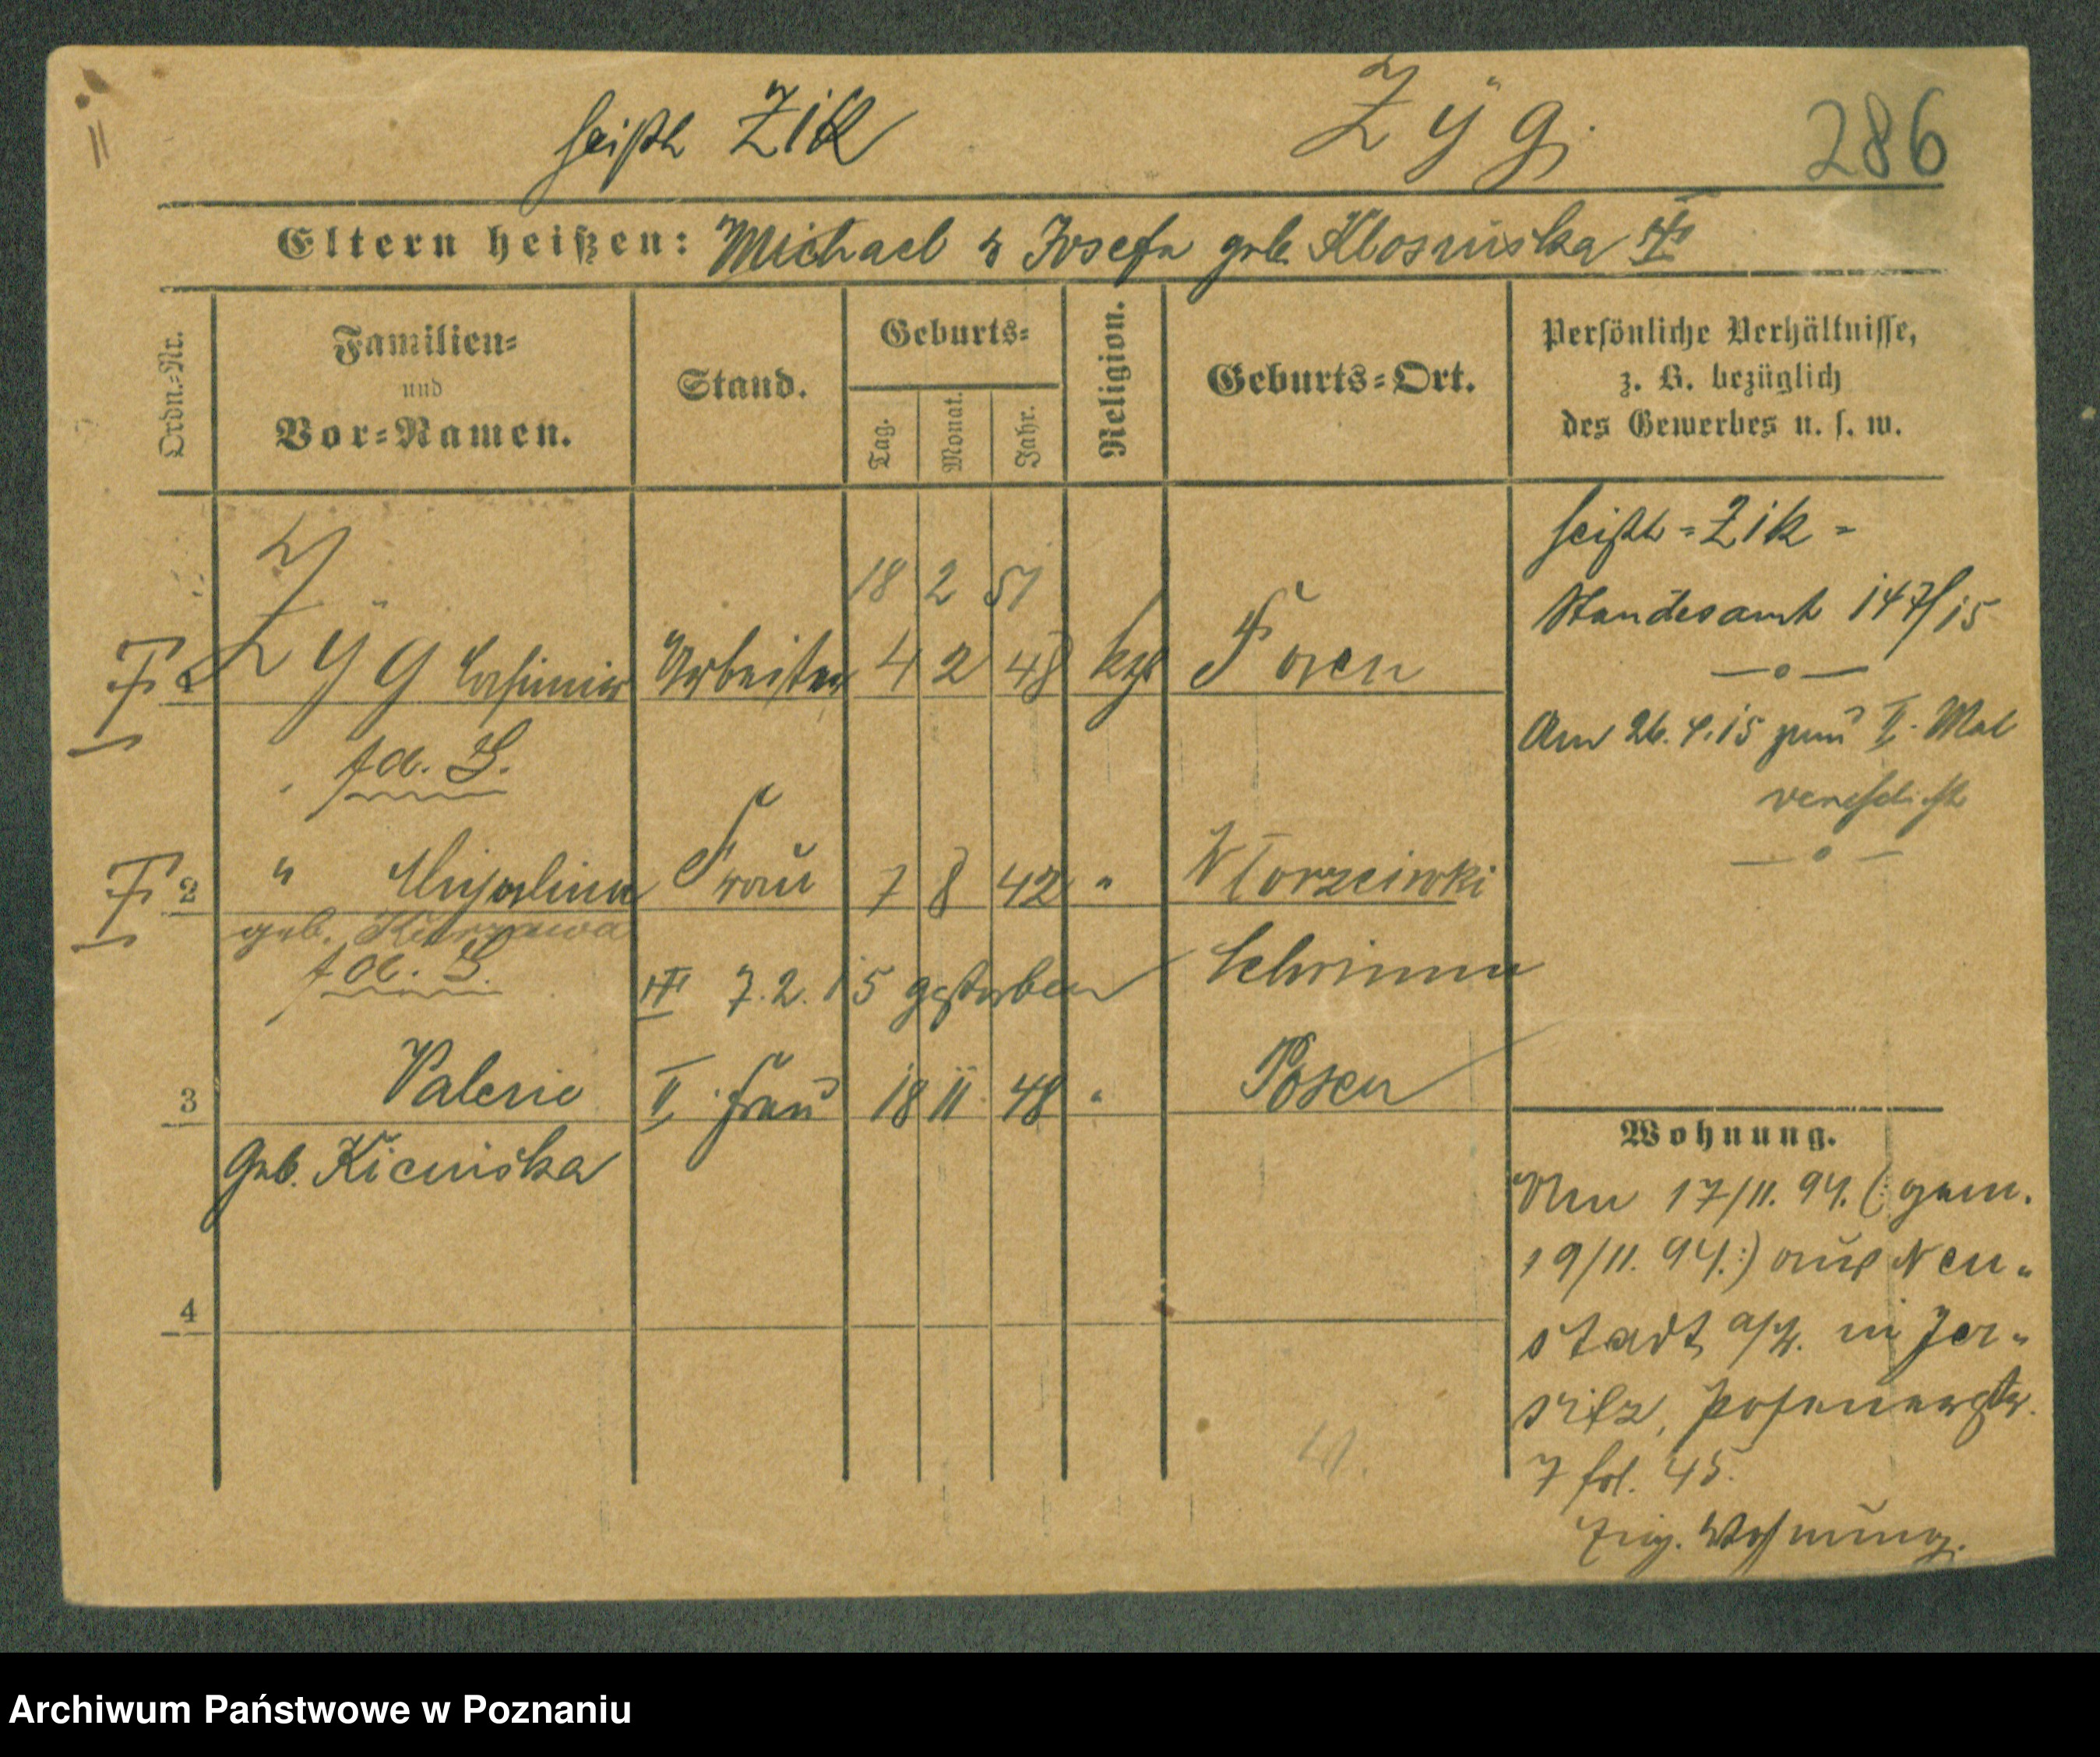 heißt Zik Zÿg. 286
Eltern heißen: Michael & Josefa geb. Klosinska
Ordn.-Nr.
Familien- und Vor-Namen.
Stand.
Geburts-
Tag. Monat. Jahr.
Religion.
Geburts-Ort.
Persönliche Verhältnisse,
z. B. bezüglich
des Gewerbes u. s. w.
heißt = Zik =
18 2 51
Standesamt 147/15
1 Zÿg Casimir Arbeiter 4 2 48 kath
Am 26.4.15 zum II. Mal
verehelicht
2 " Frau 7 8 42 "
geb.
7.2.15 gestorben Schrimm
3 Valerie II. Frau 18 11 48 " Posen
Geb. Kicinska
4
Wohnung.
Am 17/11. 94. (: gem.
19/11. 94. :) aus Neu-
stadt a/W. in Jer-
sitz, Posenerstr.
7 fol. 45.
Eig. Wohnung.
Archiwum Państwowe w Poznaniu